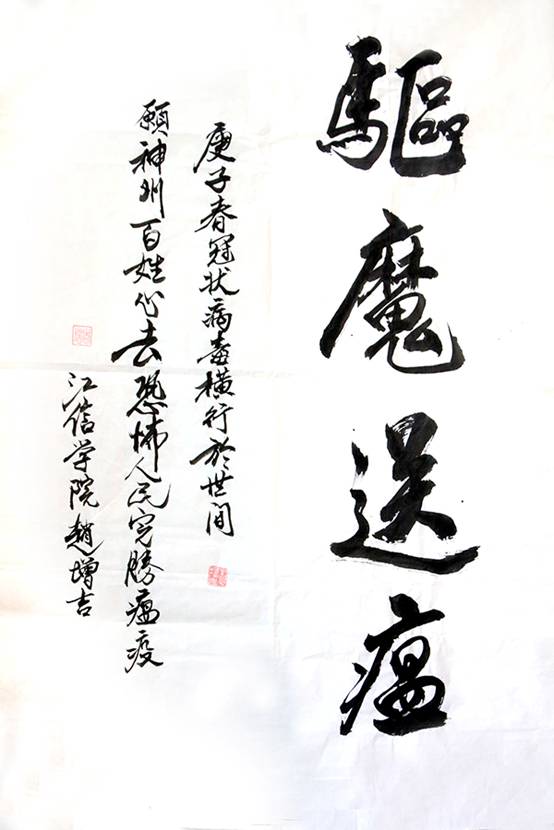 驅魔送瘟
庚子春冠狀病毒橫行於世间
願神州百姓心去恐怖人民完勝瘟疫
江信学院趙增吉